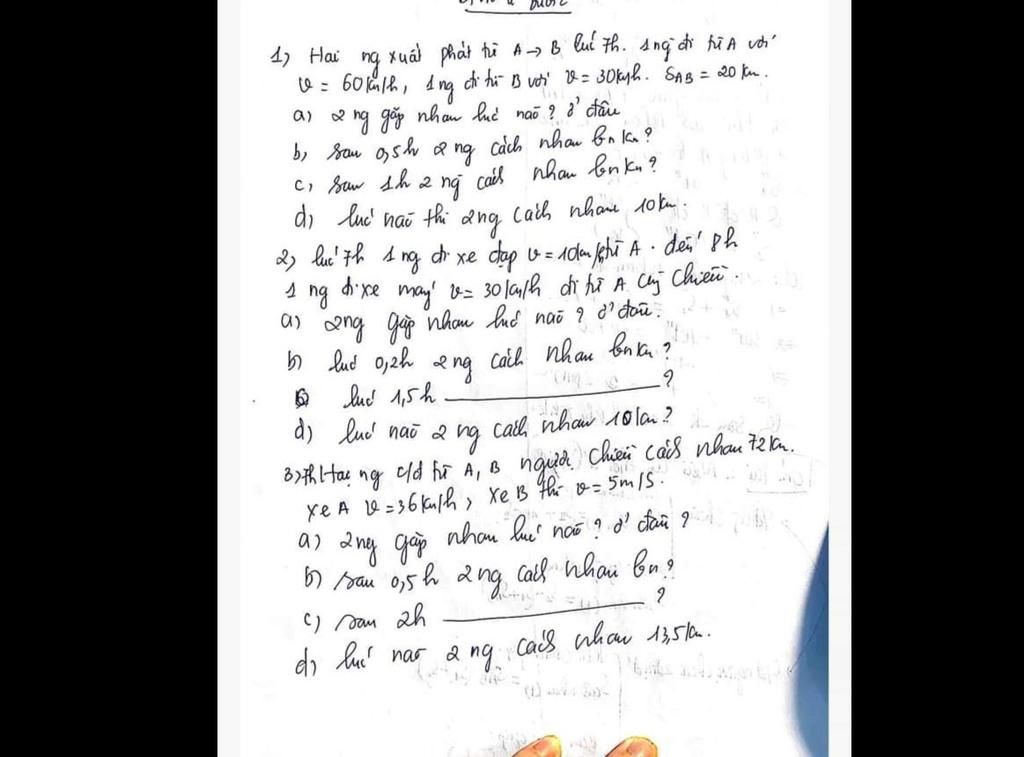 1) Hai ng xuất phát từ A → B lúc 7h. 1 ng đi từ A với
v = 60km/h, 1 ng đi từ B với v = 30km/h. SAB = 20 km.
a) 2 ng gặp nhau lúc nào? ở đâu
b) sau 0,5h 2 ng cách nhau bn km?
c) sau 1h 2 ng cách nhau bn km?
d) lúc nào thì 2 ng cách nhau 10km.
2) lúc 7h 1 ng đi xe đạp v = 10km/h từ A. đến 8h
1 ng đi xe máy v = 30km/h đi từ A cg chiều.
a) 2 ng gặp nhau lúc nào? ở đâu.
b) lúc 0,2h 2 ng cách nhau bn km?
c) lúc 1,5h ?
d) lúc nào 2 ng cách nhau 10km?
3) 7h 2 ng c/đ từ A, B ngược chiều cách nhau 72km.
xe A v = 36km/h, xe B thì v = 5m/s.
a) 2 ng gặp nhau lúc nào? ở đâu?
b) sau 0,5h 2 ng cách nhau bn?
c) sau 2h ?
d) lúc nào 2 ng cách nhau 13,5km.